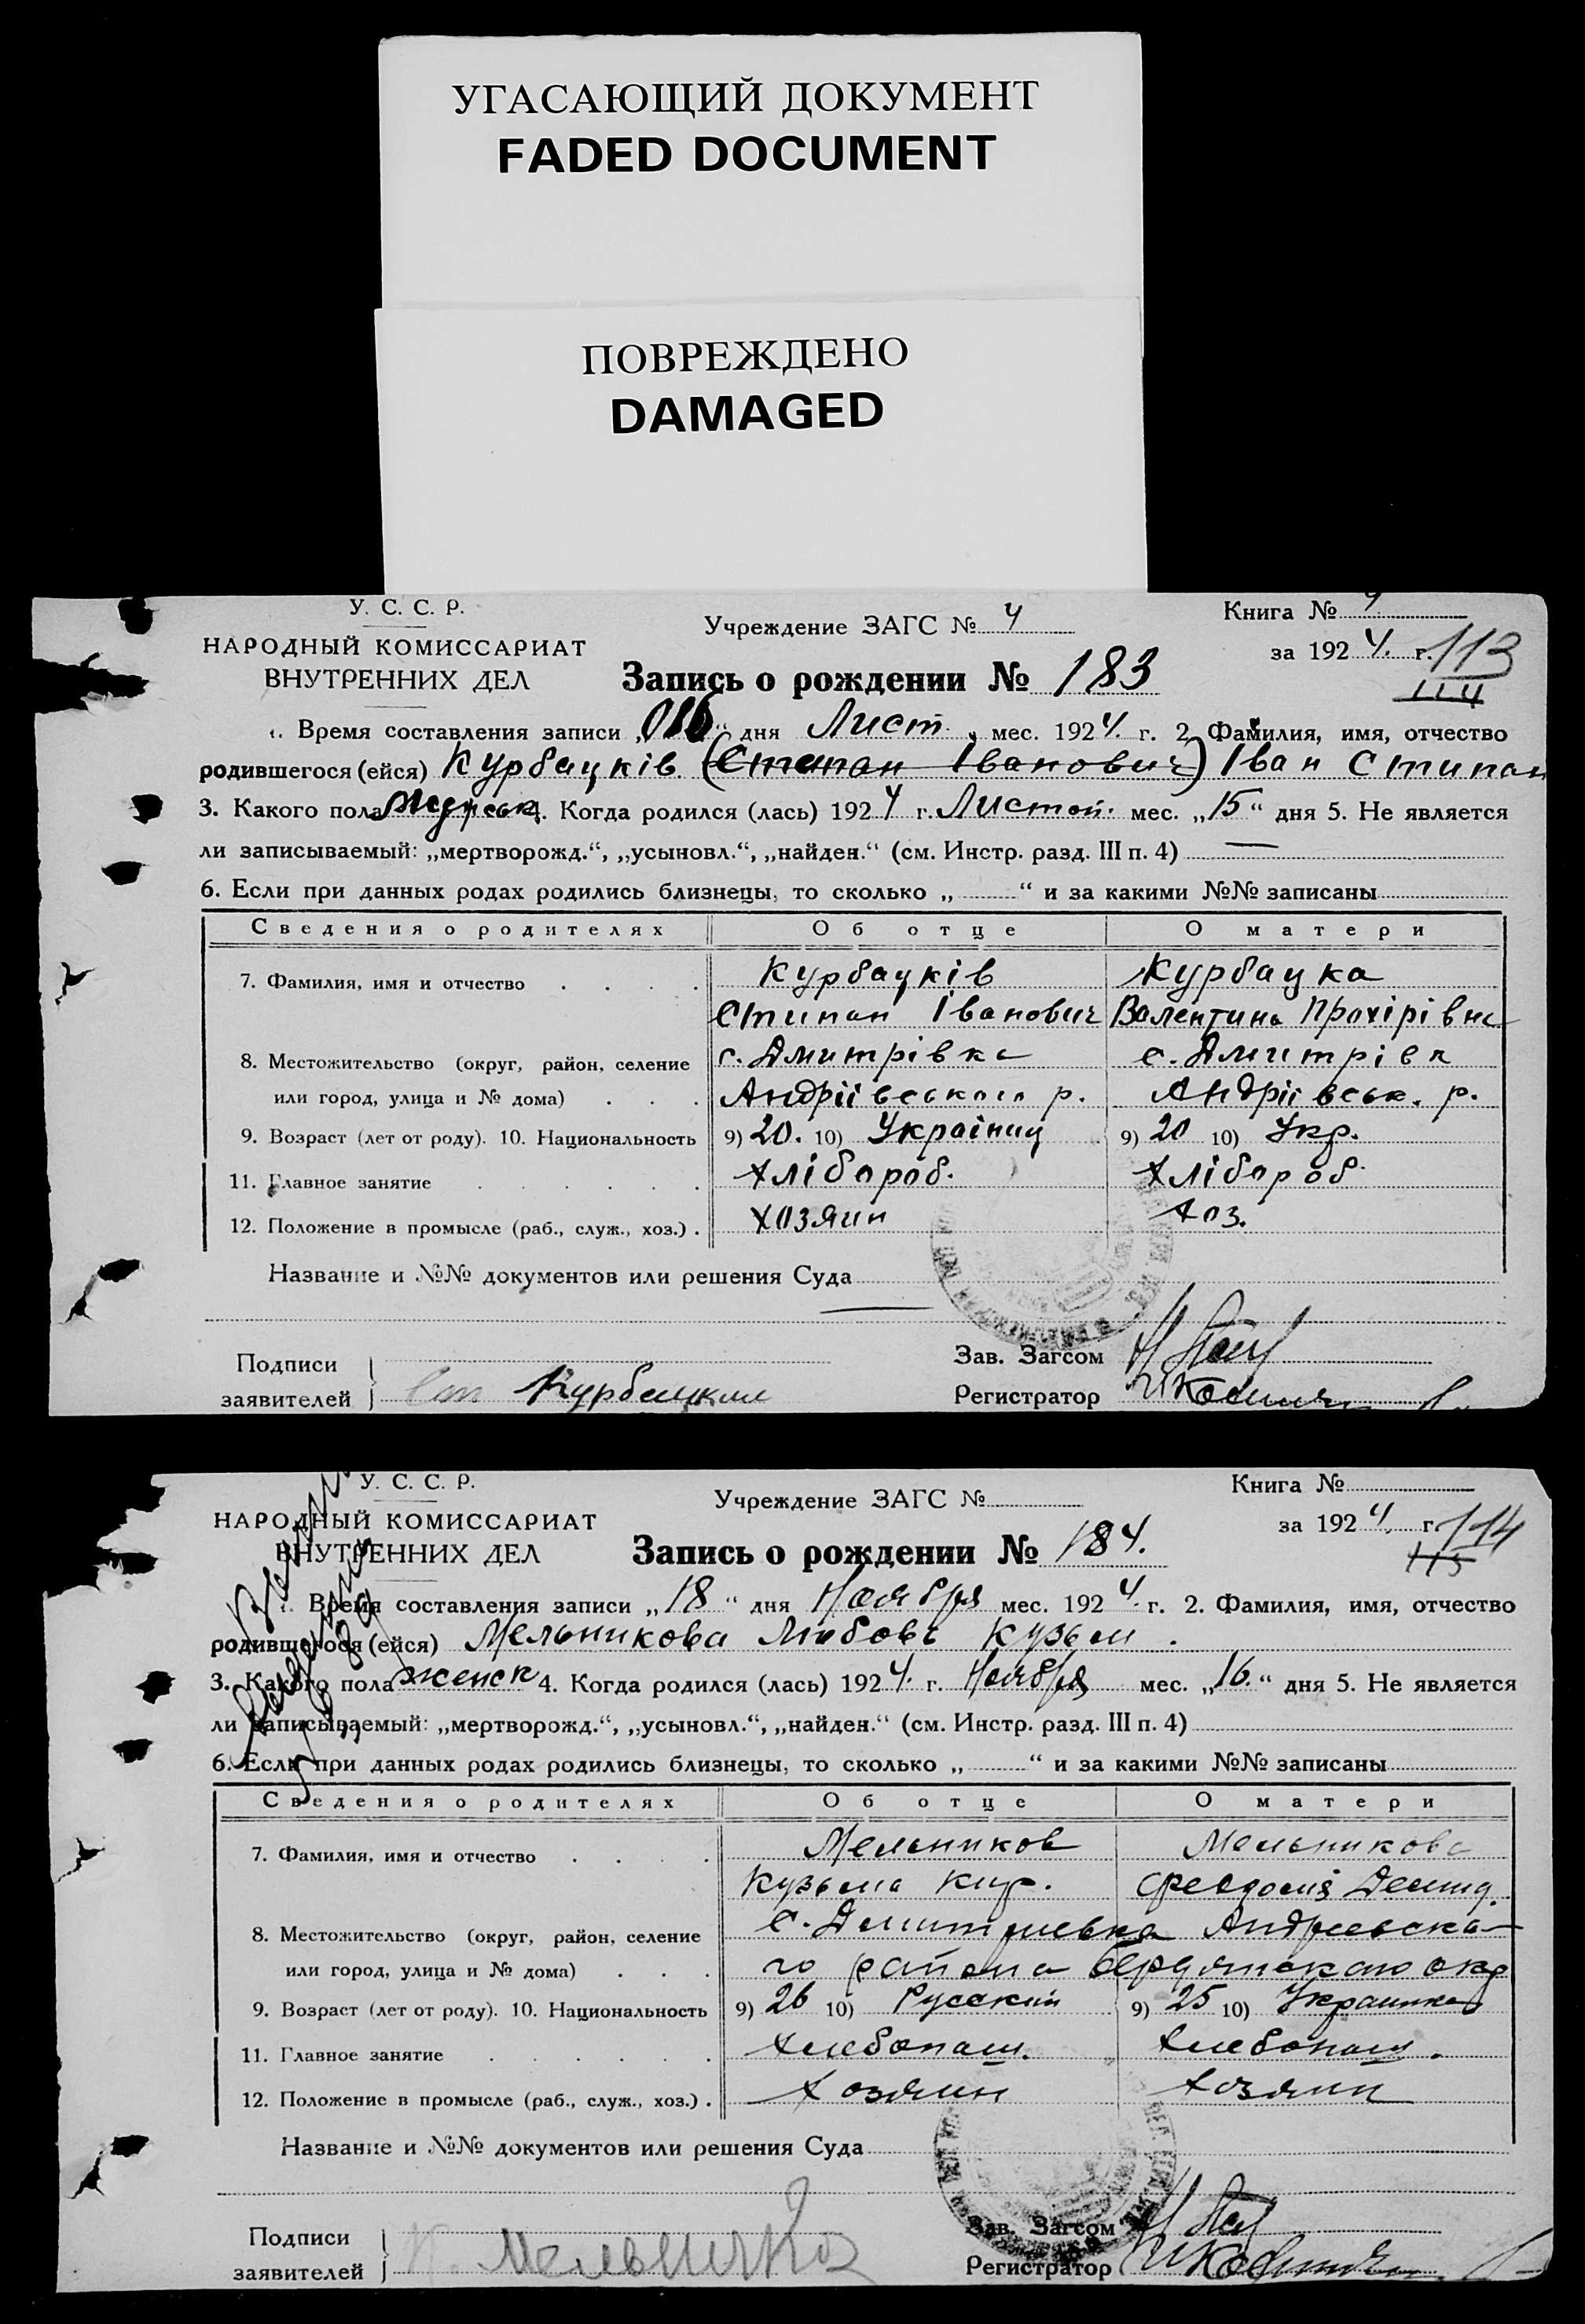 УГАСАЮЩИЙ ДОКУМЕНТ
FADED DOCUMENT
ПОВРЕЖДЕНО
DAMAGED
У. С. С. Р.
НАРОДНЫЙ КОМИССАРИАТ
ВНУТРЕННИХ ДЕЛ
Учреждение ЗАГС № 4
Книга №
за 1924. г. 113
114
Запись о рождении № 183
1. Время составления записи „16“ дня Лист. мес. 1924. г. 2. Фамилия, имя, отчество
родившегося (ейся) Курбацків (Степан Іванович) Іван Стипан
3. Какого пола мужеск 4. Когда родился (лась) 1924 г. Листоп. мес. „15“ дня 5. Не является
ли записываемый: „мертворожд.“, „усыновл.“, „найден.“ (см. Инстр. разд. III п. 4) —
6. Если при данных родах родились близнецы, то сколько „ “ и за какими №№ записаны
Сведения о родителях Об отце О матери
7. Фамилия, имя и отчество Курбацків Курбацка
Стипан Іванович Валентина Прохірівна
8. Местожительство (округ, район, селение с. Дмитрівка с. Дмитрівк
или город, улица и № дома) Андріівського р. Андріівськ. р.
9. Возраст (лет от роду). 10. Национальность 9) 20. 10) Украінец 9) 20 10) Укр.
11. Главное занятие хлібороб. хлібороб.
12. Положение в промысле (раб., служ., хоз.). хозяин хоз.
Название и №№ документов или решения Суда
Подписи
заявителей Курбацкий
Зав. Загсом
Регистратор
У. С. С. Р.
НАРОДНЫЙ КОМИССАРИАТ
ВНУТРЕННИХ ДЕЛ
Учреждение ЗАГС №
Книга №
за 1924. г. 114
115
Запись о рождении № 184.
1. Время составления записи „18“ дня Ноября мес. 1924. г. 2. Фамилия, имя, отчество
родившегося (ейся) Мельникова Любовь Кузьм.
3. Какого пола женск 4. Когда родился (лась) 1924. г. Ноября мес. „16.“ дня 5. Не является
ли записываемый: „мертворожд.“, „усыновл.“, „найден.“ (см. Инстр. разд. III п. 4)
6. Если при данных родах родились близнецы, то сколько „ “ и за какими №№ записаны
Сведения о родителях Об отце О матери
7. Фамилия, имя и отчество Мельников Мельникова
Кузьма Кир. Феодосия Демид.
8. Местожительство (округ, район, селение с. Дмитриевка Андреевска-
или город, улица и № дома) го района Бердянскаго окр
9. Возраст (лет от роду). 10. Национальность 9) 26 10) Русский 9) 25 10) Украинка
11. Главное занятие хлебопаш. хлебопаш.
12. Положение в промысле (раб., служ., хоз.). хозяин хозяин
Название и №№ документов или решения Суда
Подписи
заявителей
Зав. Загсом
Регистратор